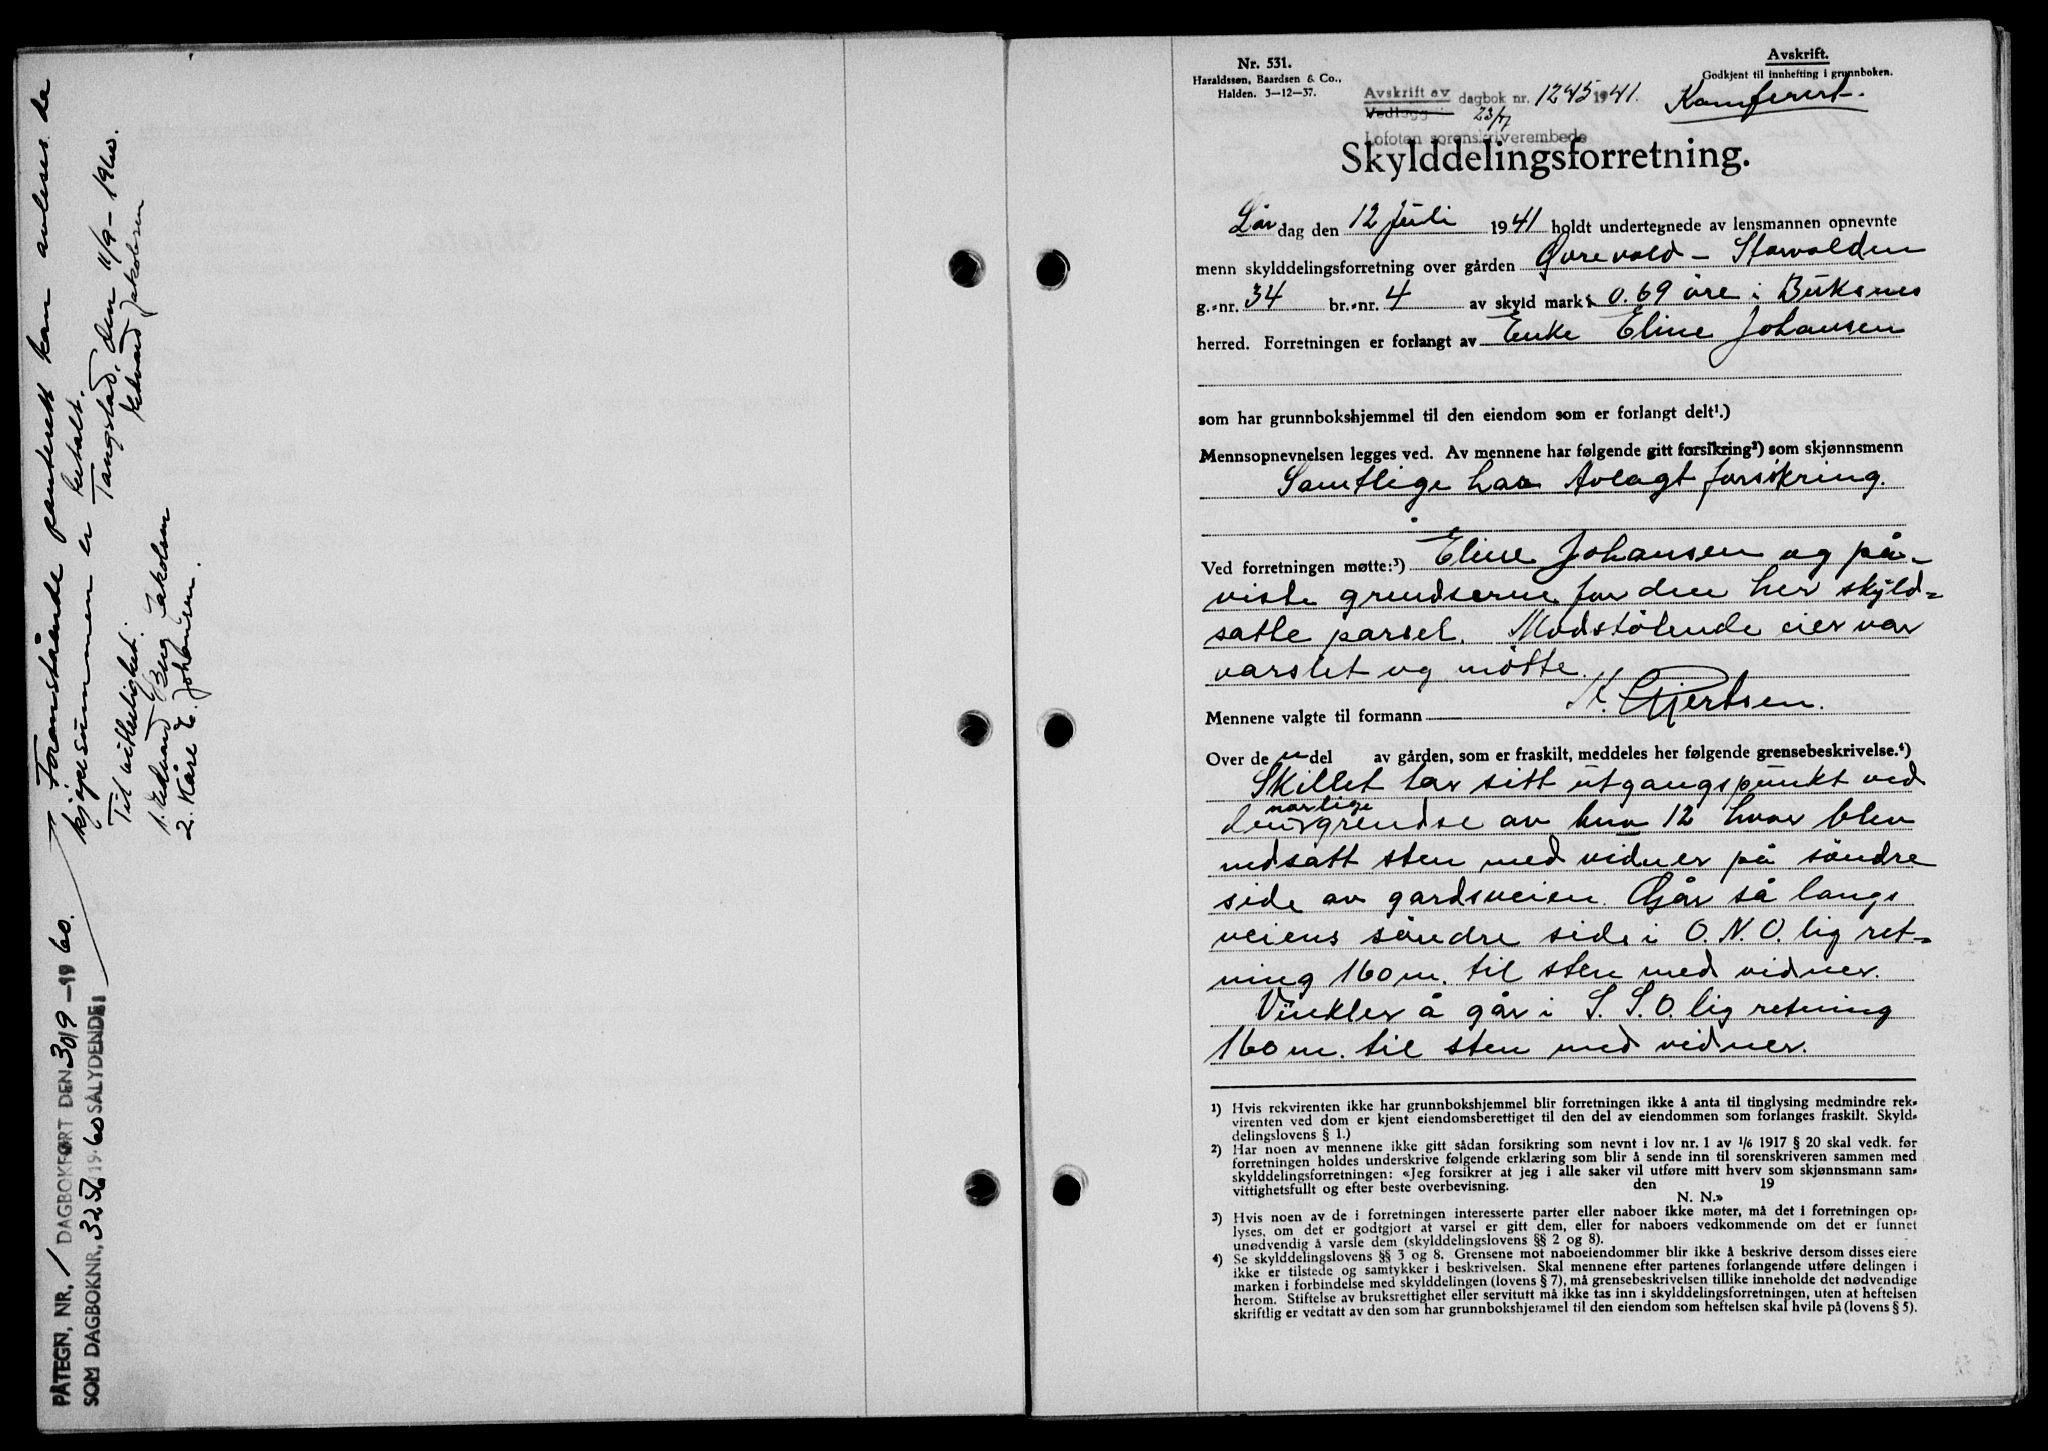 PÅTEGN. NR. 1 DAGBOKFØRT DEN 30/9 - 19 60.
SOM DAGBOKNR. 3256 19 60 SÅLYDENDE:
Foranstående panterett kan avleses da
kjøpesummen er betalt.
Tangstad, den 11/9 - 1960.
Edvard Jakobsen
Til vitterlighet:
1. Edvard Jakobsen
2. Kåre E. Johansen.
Nr. 531.
Haraldssøn, Baardsen & Co.,
Halden. 3-12-37.
Avskrift.
Godkjent til innhefting i grunnboken.
Avskrift av dagbok nr. 1245 1941.
Vedlegg 23/7
Konferert.
Lofoten sorenskriverembede
Skylddelingsforretning.
Lør dag den 12 Juli 1941 holdt undertegnede av lensmannen opnevnte
menn skylddelingsforretning over gården Øvrevold - Storvolden
g.-nr. 34 br.-nr. 4 av skyld mark 0.69 øre i Buksnes
herred. Forretningen er forlangt av Enke Eline Johansen
som har grunnbokshjemmel til den eiendom som er forlangt delt¹.)
Mennsopnevnelsen legges ved. Av mennene har følgende gitt forsikring²) som skjønnsmenn
Samtlige har Avlagt forsikring.
Ved forretningen møtte:³) Eline Johansen og på-
viste grendserne for den her skyld=
satte parsel. Modstøtende eier var
varslet og møtte.
Mennene valgte til formann K. Gjertsen.
Over de n del av gården, som er fraskilt, meddeles her følgende grensebeskrivelse.⁴)
Skillet tar sitt utgangspunkt ved
den norlige grendse av bnr 12 hvor blev
nedsatt sten med vidner på söndre
side av gardsveien. Går så langs
veiens söndre side i O. N. O. lig ret-
ning 160 m. til sten med vidner.
Vinkler å går i S. S. O. lig retning
160 m. til sten med vidner.
1) Hvis rekvirenten ikke har grunnbokshjemmel blir forretningen ikke å anta til tinglysing medmindre rek-
virenten ved dom er kjent eiendomsberettiget til den del av eiendommen som forlanges fraskilt. Skyld-
delingslovens § 1.)
2) Har noen av mennene ikke gitt sådan forsikring som nevnt i lov nr. 1 av 1/6 1917 § 20 skal vedk. før
forretningen holdes underskrive følgende erklæring som blir å sende inn til sorenskriveren sammen med
skylddelingsforretningen: «Jeg forsikrer at jeg i alle saker vil utføre mitt hverv som skjønnsmann sam-
vittighetsfullt og efter beste overbevisning. den 19
N. N.»
3) Hvis noen av de i forretningen interesserte parter eller naboer ikke møter, må det i forretningen op-
lyses, om det er godtgjort at varsel er gitt dem, eller for naboers vedkommende om det er funnet
unødvendig å varsle dem (skylddelingslovens §§ 2 og 8).
4) Se skylddelingslovens §§ 3 og 8. Grensene mot naboeiendommer blir ikke å beskrive dersom disses eiere
ikke er tilstede og samtykker i beskrivelsen. Skal mennene efter partenes forlangende utføre delingen i
marken i forbindelse med skylddelingen (lovens § 7), må grensebeskrivelsen tillike inneholde det nødvendige
herom. Stiftelse av bruksrettighet eller servitutt må ikke tas inn i skylddelingsforretningen, uten at heftelsen
skriftlig er vedtatt av den som har grunnbokshjemmel til den eiendom som heftelsen skal hvile på (lovens § 5).